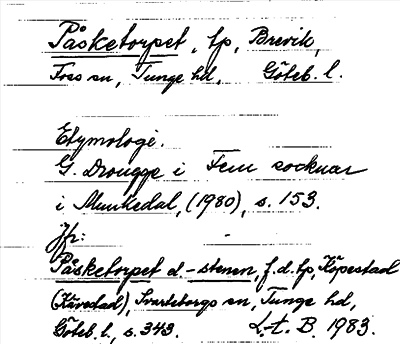 Påsketorpet, tp, Brevik,
Foss sn, Tunge hd, Göteb. l.
Etymologi.
G. Drougge i Fem socknar
i Munkedal, (1980), s. 153.
Jfr:
Påsketorpet d -stenen, f.d. tp, Köpestad
(Kärestad), Svarteborgs sn, Tunge hd,
Göteb. l., s. 343. L-t. B. 1983.